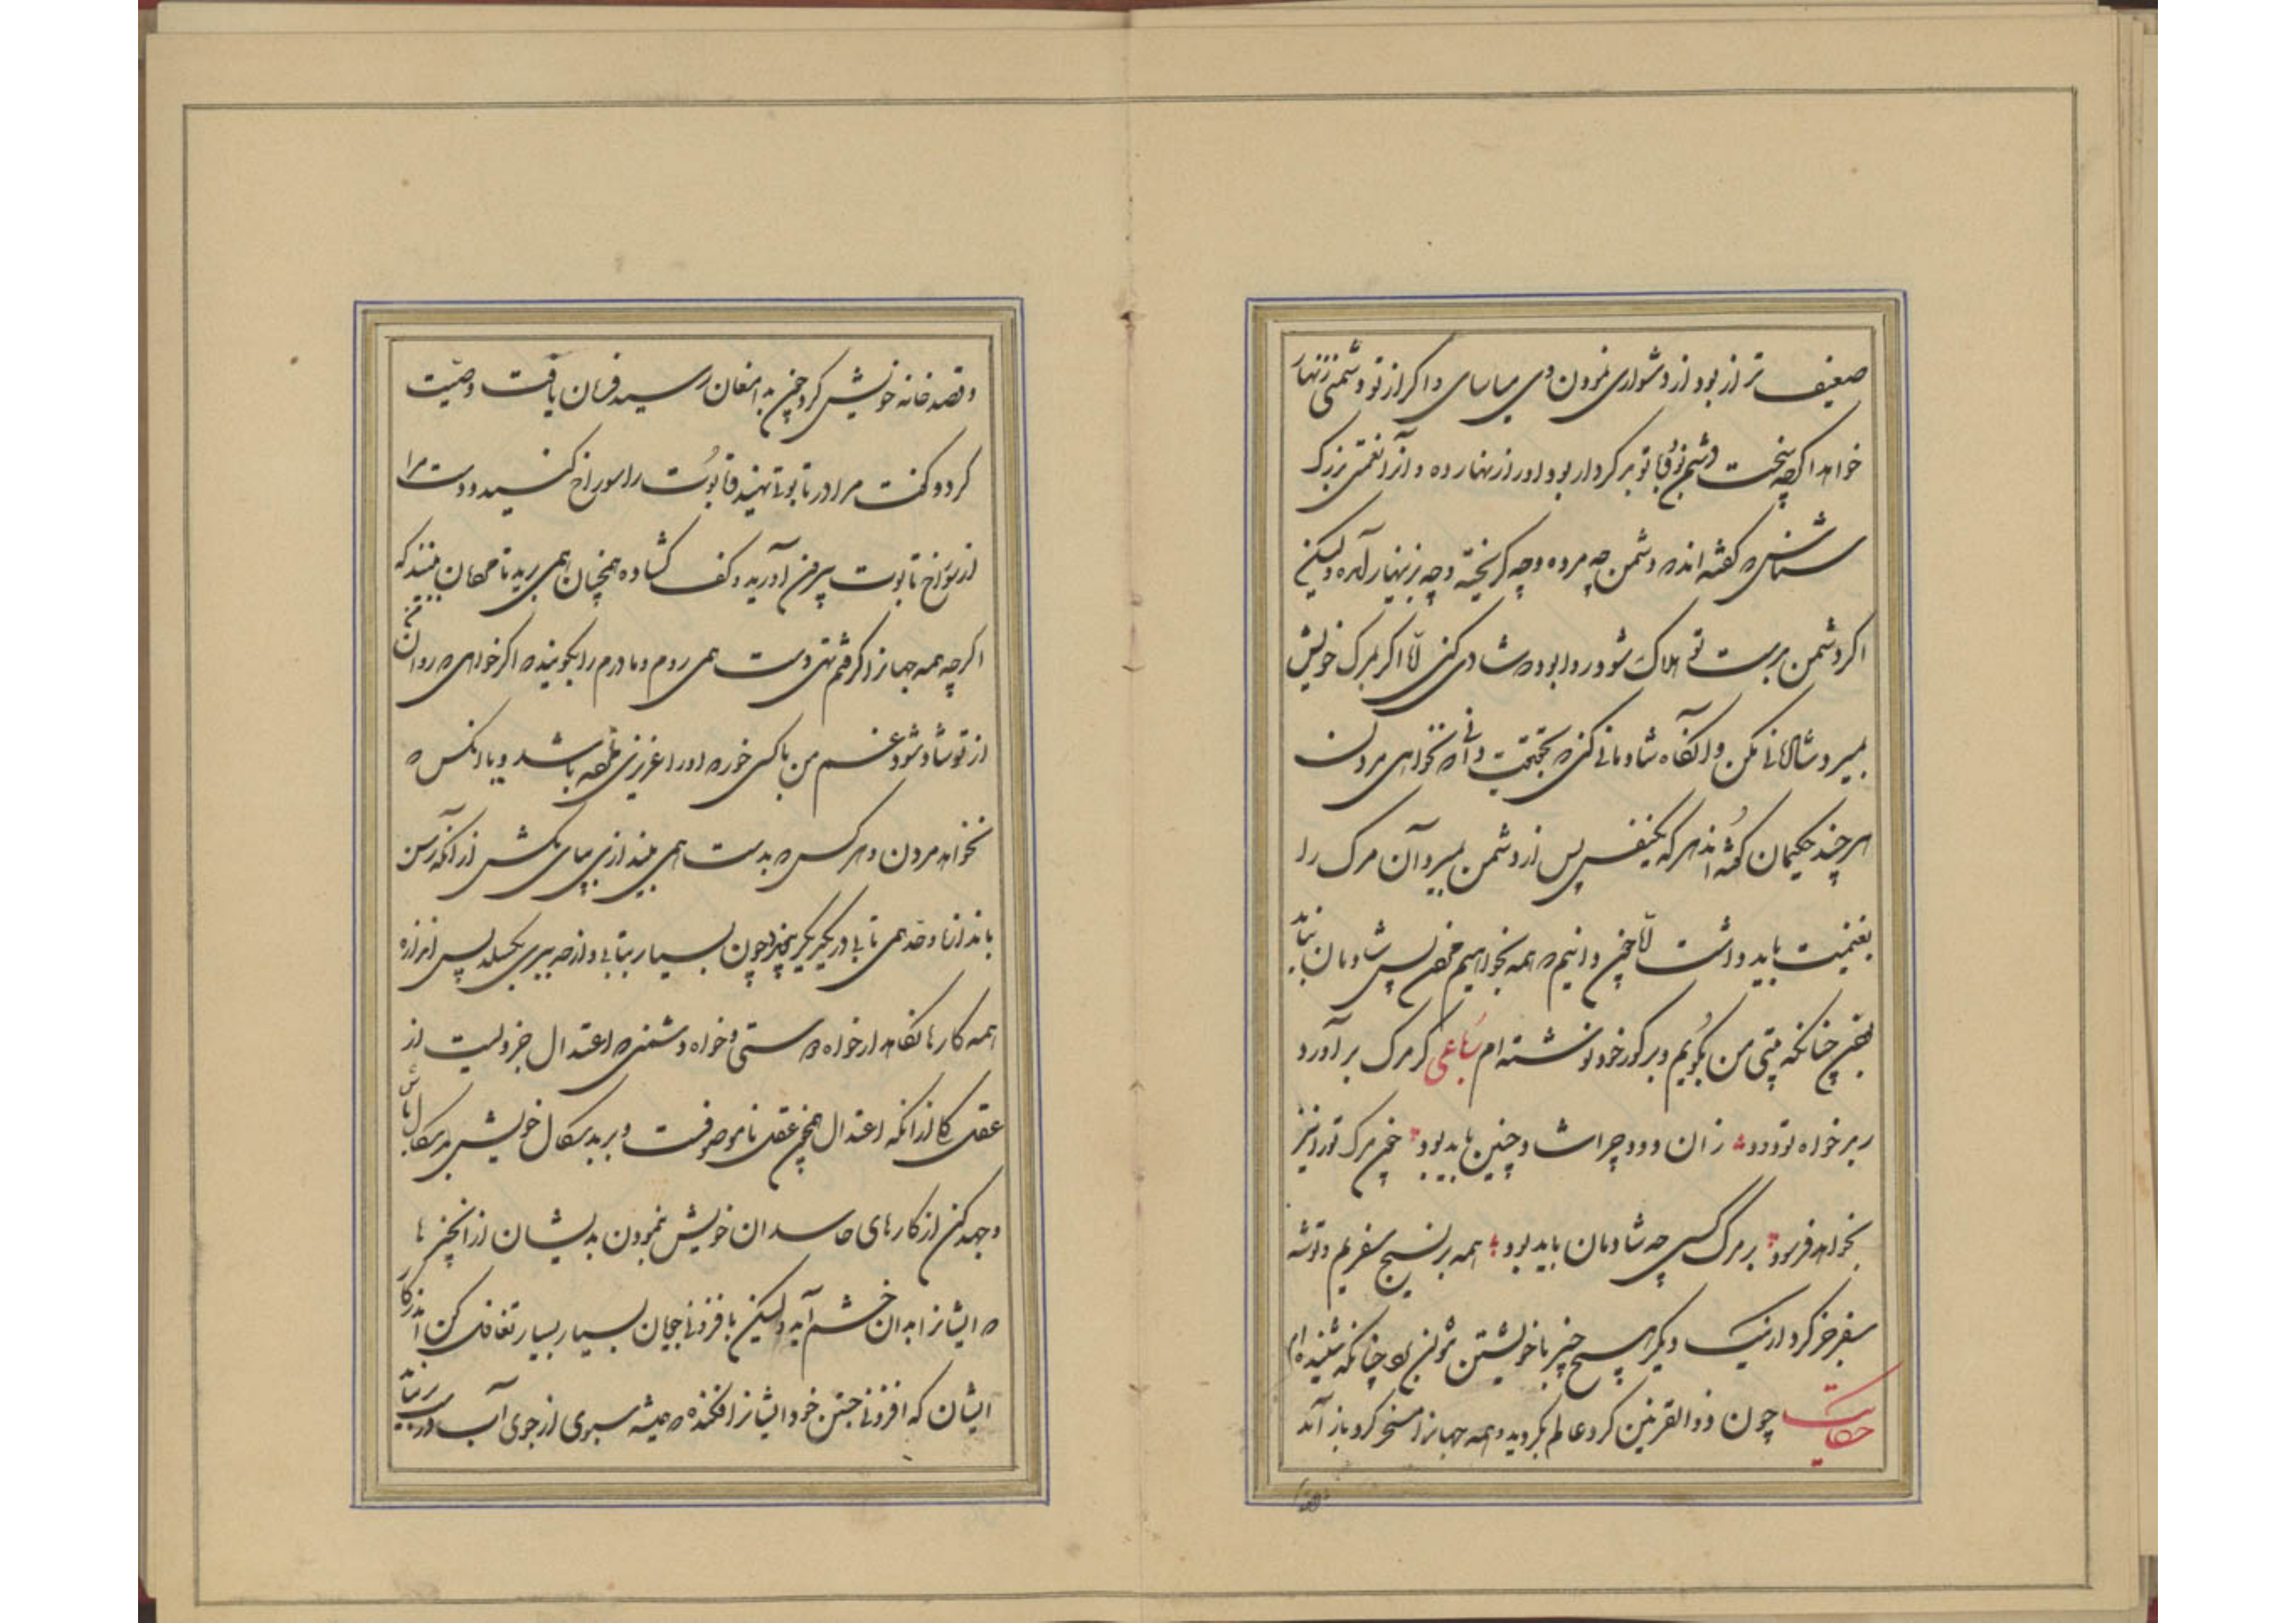 ضعیف تر از بود از دشواری نمودن وی میاسای و اگر از تو دشمنی زنهار
خواهد اگرچه سخت دشمنی بود و با تو بد کردار بود او را زنهار ده و آنرا نعمتی بزرگ
شناس که گفته اند که دشمن چه مرده و چه گریخته و چه بزینهار آمده ولیکن
اگر دشمن بر دست تو هلاک شود روا بود که شادی کنی امّا اگر بمرگ خویش
بمیرد شادمانی مکن وانگاه شادمانی کن که بحقیقت دانی که نخواهی مردن
هر چند حکیمان گفته اند هر که یکنفس پس از دشمن بمیرد آن مرگ را
بغنیمت باید داشت امّا چون دانیم که همه بخواهیم مردن پس شادمان نباید
بودن چنانکه بیتی من بگویم و بر گور خود نوشته ام رباعی گر مرگ برآورد
ز بدخواه تو دود ز ان دود چرا شاد چنین باید بود چون مرگ تو را نیز
بخواهد فرسود بر مرگ کسی چه شادمان باید بود همه بر بسیج سفریم و توشه
سفر جز کردار نیک دیگر هیچ چیز با خویشتن نتوان برد چنانکه شنیده ام
حکایت چون ذوالقرنین گرد عالم بگردید و همه جهانرا مسخر کرد باز آمد
و قصد خانه خویش کرد چون بدامغان رسید فرمان یافت وصیّت
کرد و گفت مرا در تابوتی نهید و تابوت را سوراخ کنید و دست مرا
از سوراخ تابوت بیرون آورید و کف گشاده همچنان همی برید تا مردمان ببینند که
اگرچه همه جهانرا گرفتم تهی دست همی روم و مادرم را بگویند که اگر خواهی که روان من
از تو شاد شود غم من با کسی خور که او را عزیزی نمرده باشد و یا آنکس که
نخواهد مردن و هر کس که بدست همی بیندازی بپای میکش از آنکه رسن
باندازه و حد همی تابی در یکدیگر پیچد و چون بسیار بتابی و از حد ببری بگسلد پس اندازه
همه کارها نگاه دار خواه در دوستی و خواه در دشمنی که اعتدال جزویست از
عقل کل از آنکه اعتدال همچون عقل نامعروفست و بر بدسگال خویش بدسگال باش
و جهد کن از کارهای حاسدان خویش نمودن بدیشان از آنچیزها
که ایشانرا بدان خشم آید ولیکن با فزونی جویان بسیار بسیار تغافل کن اندر کار
ایشان که افزونی جستن خود ایشانرا افکند که همیشه سبوی از جوی آب درست نیاید